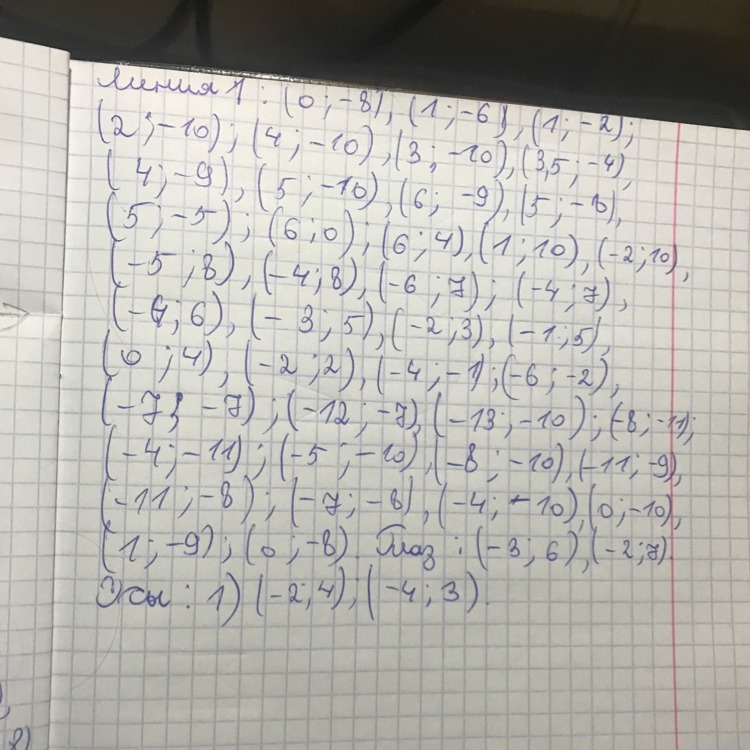 Линия 1: (0; -8), (1; -6), (1; -2);
(2; -10); (4; -10), (3; -10), (3,5; -4),
(4; -9), (5; -10), (6; -9), (5; -8),
(5; -5); (6; 0); (6; 4), (1; 10), (-2; 10),
(-5; 8), (-4; 8), (-6; 7); (-4; 7),
(-6; 6), (-3; 5), (-2; 3), (-1; 5),
(0; 4), (-2; 2), (-4; -1); (-6; -2),
(-7; -7); (-12; -7), (-13; -10); (-8; -11);
(-4; -11); (-5; -10), (-8; -10), (-11; -9),
(-11; -8); (-7; -8), (-4; -10), (0; -10),
(1; -9); (0; -8). Глаз: (-3; 6), (-2; 7).
Усы: 1) (-2; 4); (-4; 3).
8)